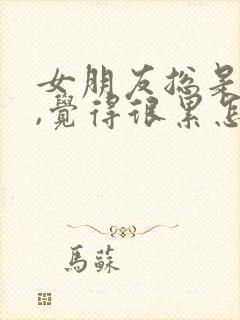 女朋友总是
,覺得很累怎
馬蘇